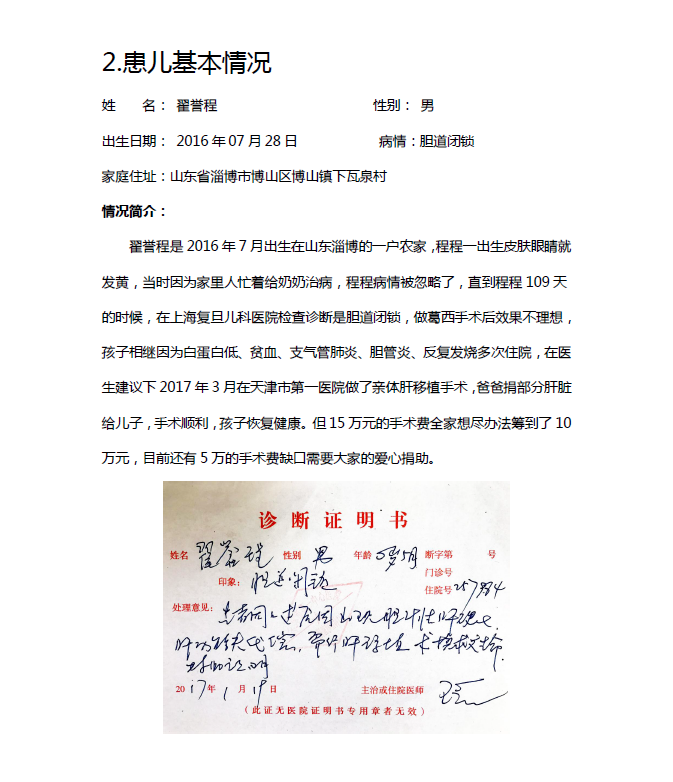 2.患儿基本情况
姓 名： 翟誉程 性别： 男
出生日期： 2016 年 07 月 28 日 病情：胆道闭锁
家庭住址：山东省淄博市博山区博山镇下瓦泉村
情况简介：
翟誉程是 2016 年 7 月出生在山东淄博的一户农家，程程一出生皮肤眼睛就
发黄，当时因为家里人忙着给奶奶治病，程程病情被忽略了，直到程程 109 天
的时候，在上海复旦儿科医院检查诊断是胆道闭锁，做葛西手术后效果不理想，
孩子相继因为白蛋白低、贫血、支气管肺炎、胆管炎、反复发烧多次住院，在医
生建议下 2017 年 3 月在天津市第一医院做了亲体肝移植手术，爸爸捐部分肝脏
给儿子，手术顺利，孩子恢复健康。但 15 万元的手术费全家想尽办法筹到了 10
万元，目前还有 5 万的手术费缺口需要大家的爱心捐助。
诊断证明书
姓名 翟誉程 性别 男 年龄 0岁5月 断字第 号
门诊号
印象：胆道闭锁 住院号 257984
处理意见：患者因
肝功
2017年1月19日 主治或住院医师
（此证无医院证明书专用章者无效）